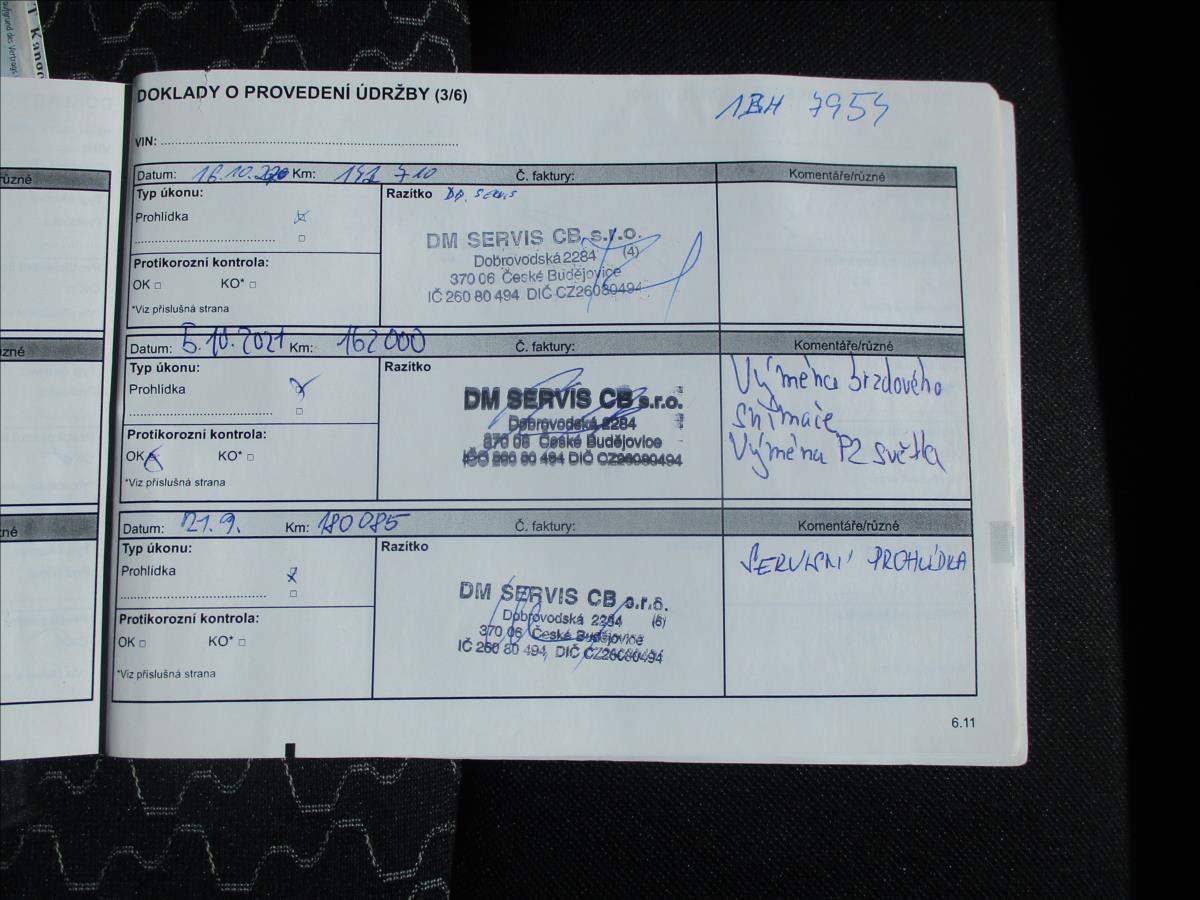 DOKLADY O PROVEDENÍ ÚDRŽBY (3/6)
1BH 7954
VIN:
Datum: 16.10. Km: 142 710 Č. faktury: Komentáře/různé
Typ úkonu:
Razítko
Prohlídka
DM SERVIS CB s.r.o.
Dobrovodská 2284 (4)
370 06 České Budějovice
IČ 260 80 494 DIČ CZ26080494
Protikorozní kontrola:
OK □ KO* □
*Viz příslušná strana
Datum: 5.10.2021 Km: 162000 Č. faktury: Komentáře/různé
Typ úkonu:
Razítko
Prohlídka
DM SERVIS CB s.r.o.
Dobrovodská 2284
370 06 České Budějovice
IČO 260 80 494 DIČ CZ26080494
Výměna brzdového
snímače
Výměna PZ světla
Protikorozní kontrola:
OK KO* □
*Viz příslušná strana
Datum: 21.9. Km: 180085 Č. faktury: Komentáře/různé
Typ úkonu:
Razítko
Prohlídka
DM SERVIS CB s.r.o.
Dobrovodská 2284 (6)
370 06 České Budějovice
IČ 260 80 494, DIČ CZ26080494
SERVISNÍ PROHLÍDKA
Protikorozní kontrola:
OK □ KO* □
*Viz příslušná strana
6.11